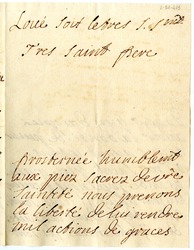 Loüé soit le tres S. Sme
Tres saint pere
prosternée humblement
aux piez sacrez de vre
sainteté nous prenons
la liberté de luy rendre
mil actions de graces